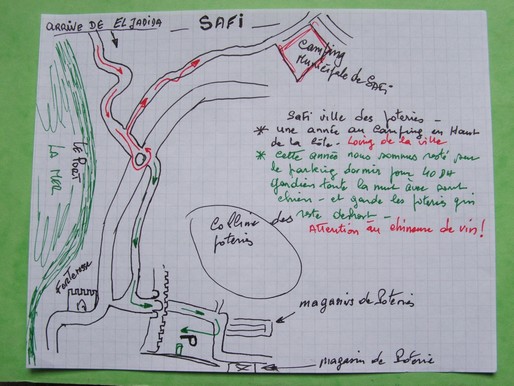 ARRIVÉ DE EL JADIDA
SAFI
Camping
Municipale de SAFI
Safi ville des poteries -
* une année au Camping en Haut
de la Côte - Loing de la ville
* Cette année nous sommes resté sur
le parking dormis pour 40 DH
Gardien toute la nuit avec petit
chien - et garde les poteries qui
reste dehors -
Attention au de vin!
LE PORT
LA MER
Colline des
poteries
Forteresse
P
magasins de Poteries
magasin de Poterie